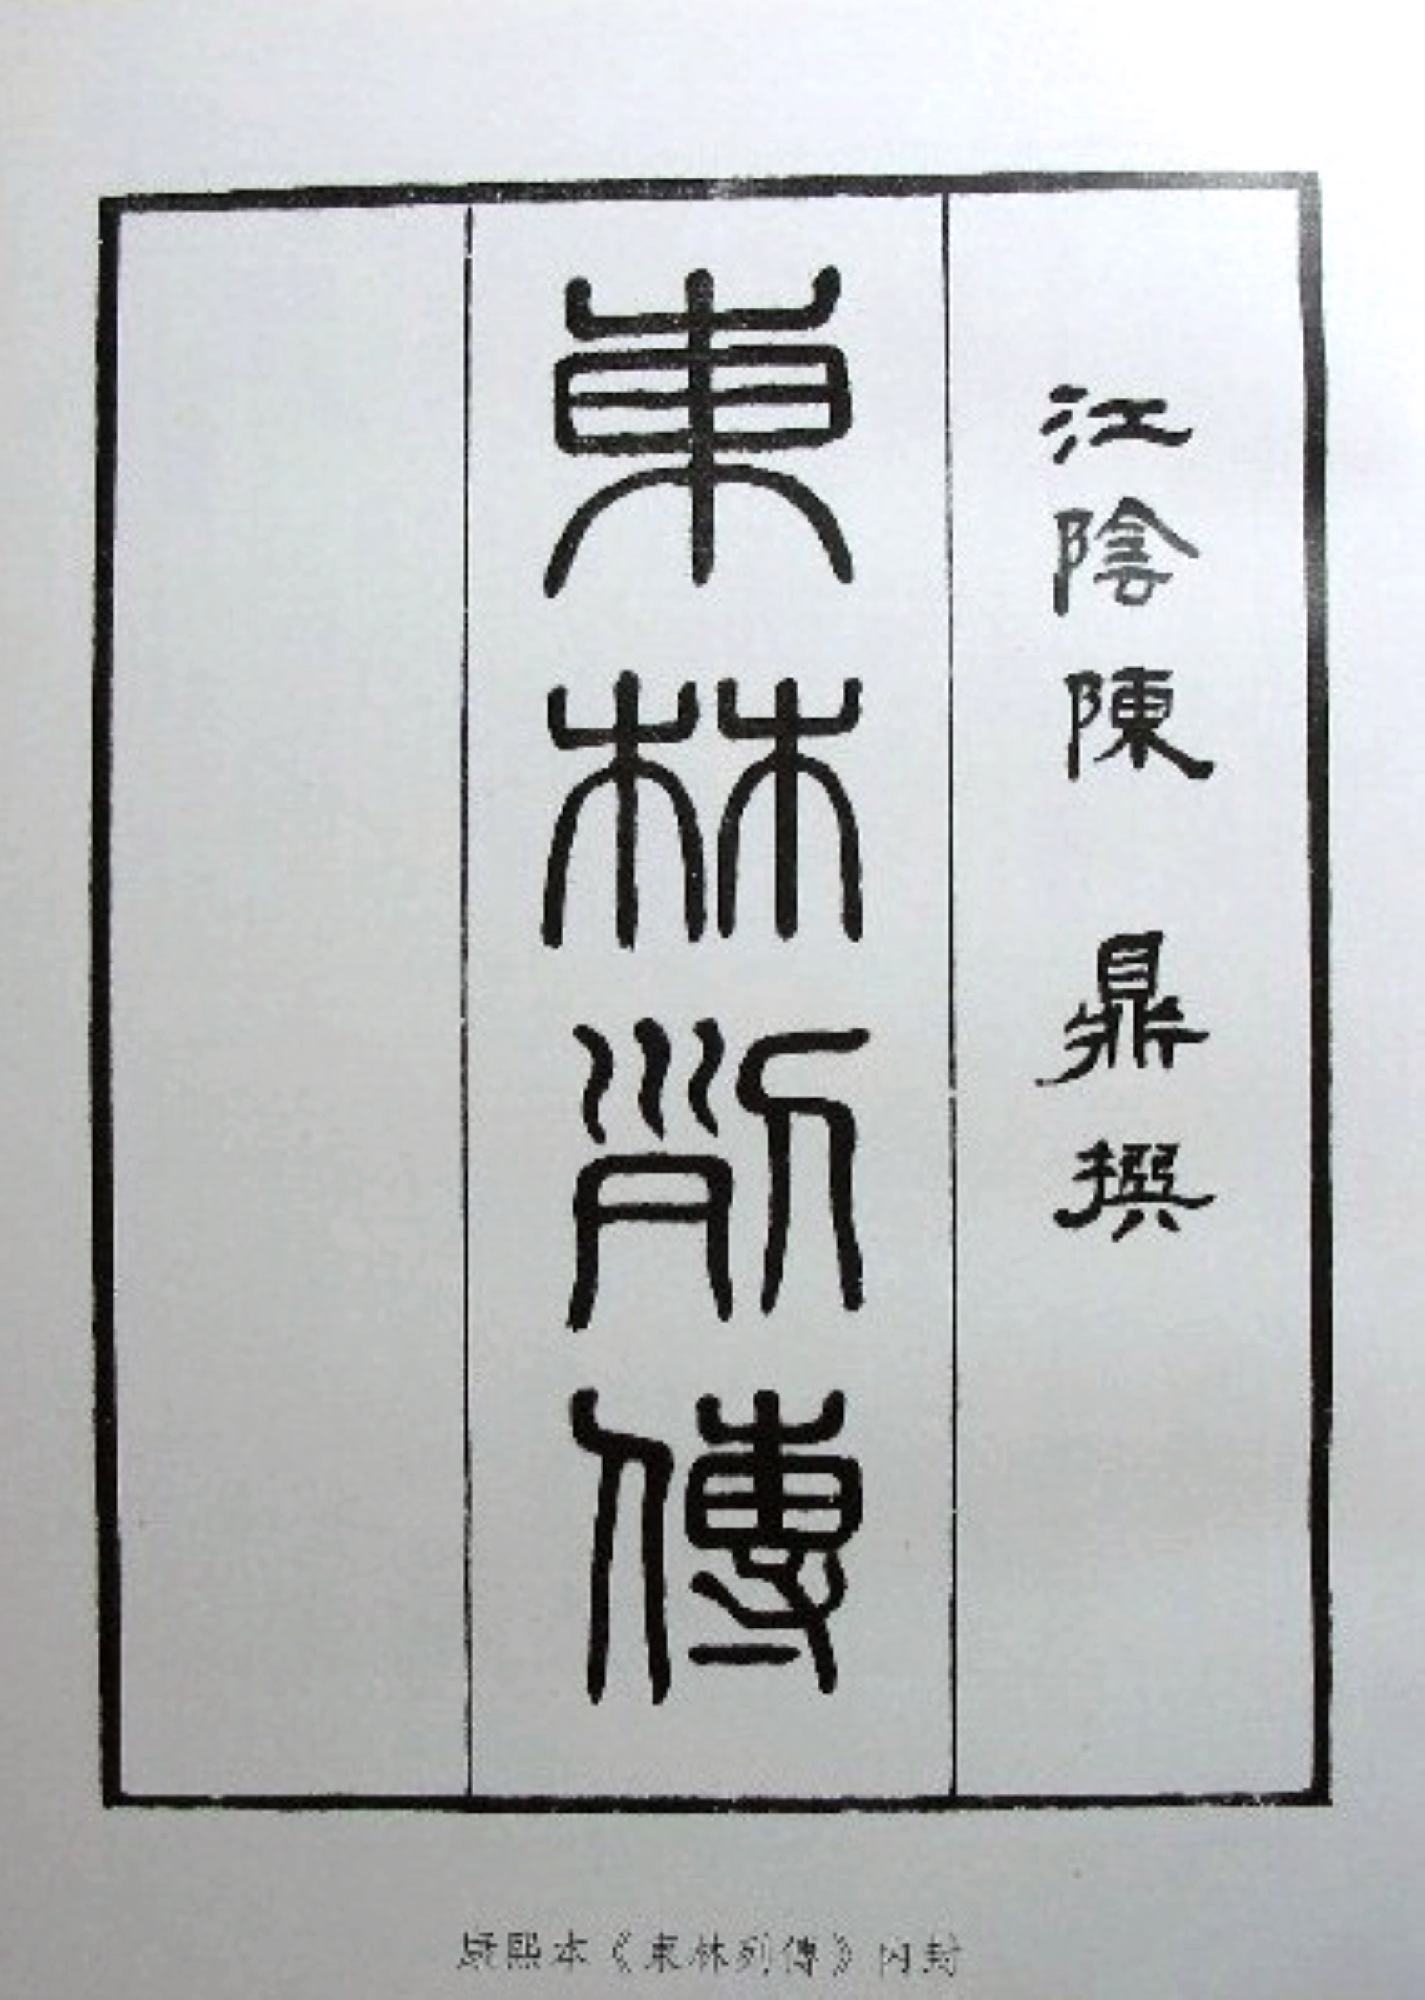 江陰陳 鼎撰
東林列傳
康熙本《東林列傳》內封